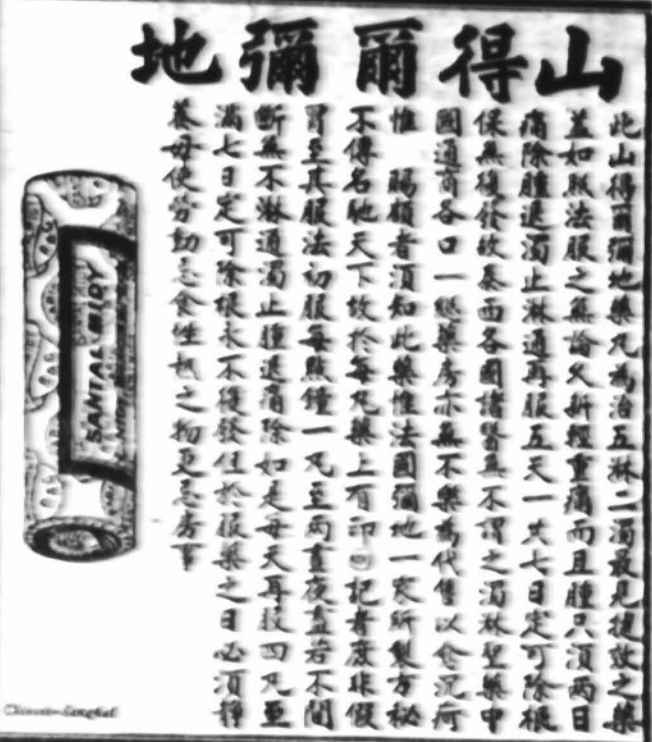 山得爾彌地
此山得爾彌地藥丸為治五淋二濁最見捷效之藥
蓋如照法服之無論久新輕重痛而且腫只須兩日
痛除腫退濁止淋通再服五天一共七日定可除根
保無復發故泰西各國諸醫無不謂之濁淋聖藥中
國通商各口一總藥房亦無不樂為代售以沉疴
惟 賜顧者須知此藥惟法國彌地一家所製方秘
不傳名馳天下故於每丸藥上有印記者庶非假
冒至其服法初服每點鐘一丸至兩晝夜盡若不間
斷無不淋通濁止腫退痛除如是每天再服四丸至
滿七日定可除根永不復發但於服藥之日必須靜
養毋使勞動忌食性熱之物更忌房事
SANTAL MIDY